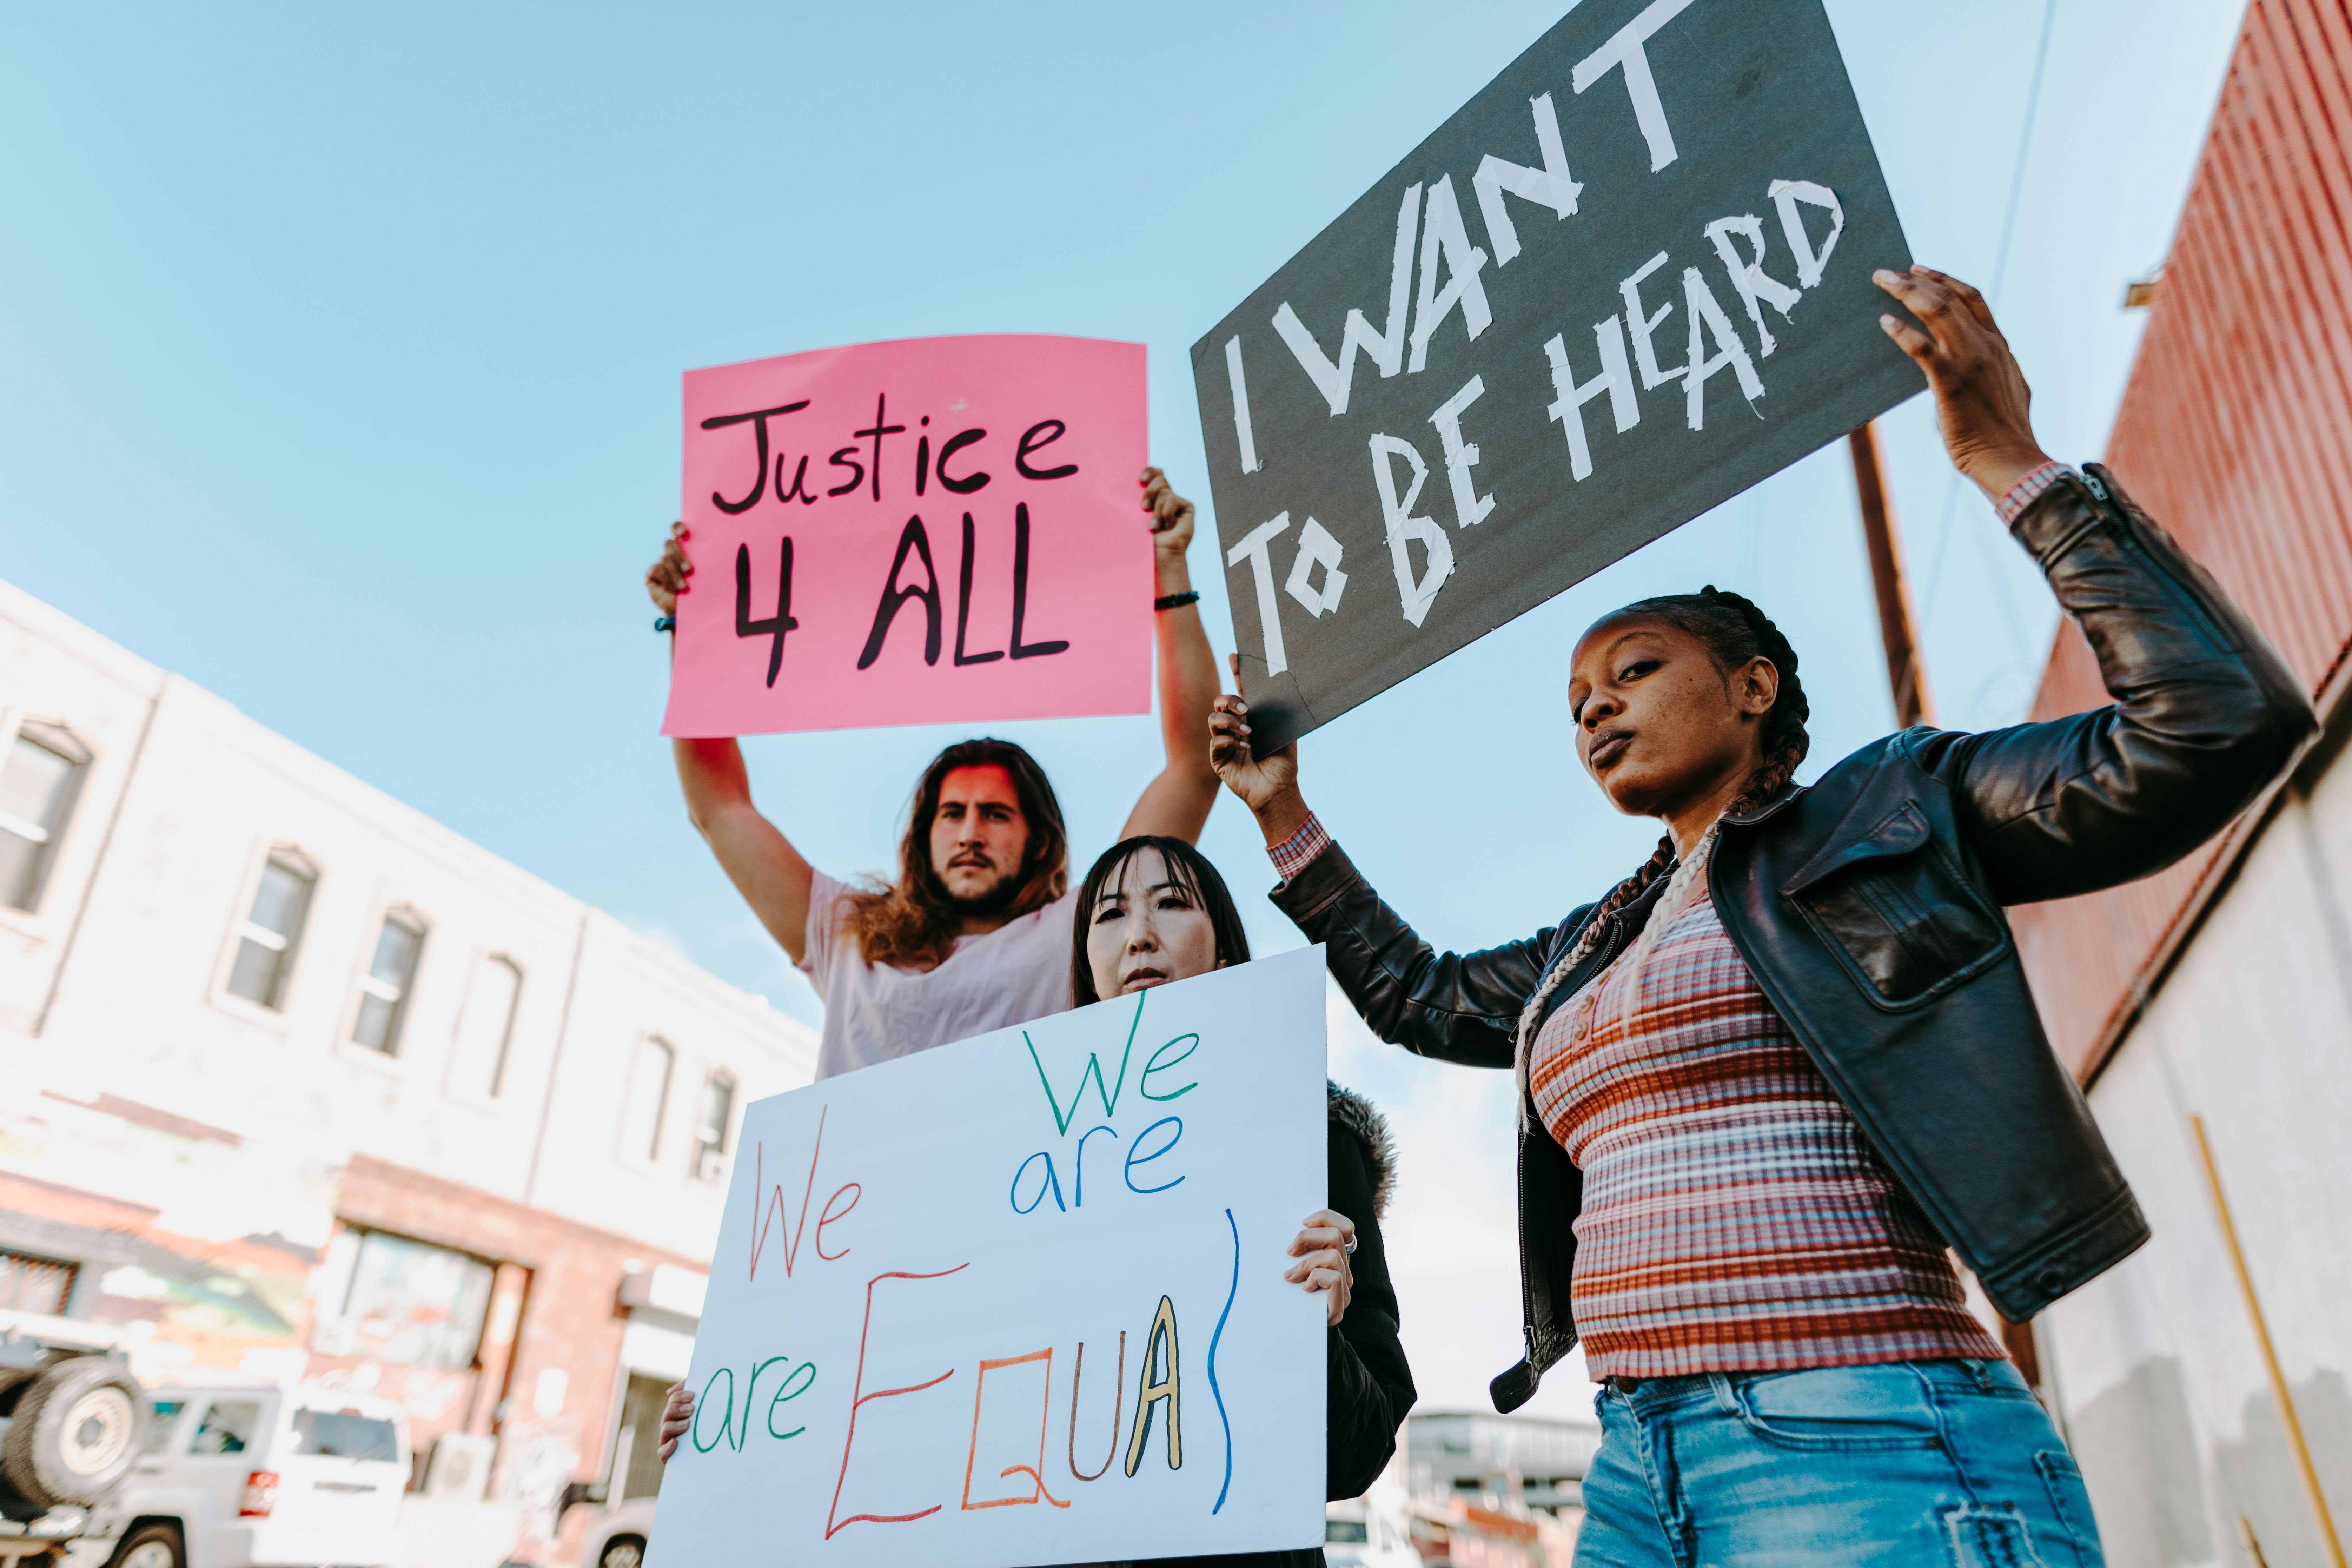 Justice
4 ALL
I WANT
TO BE HEARD
We
are
We
are
EQUAL